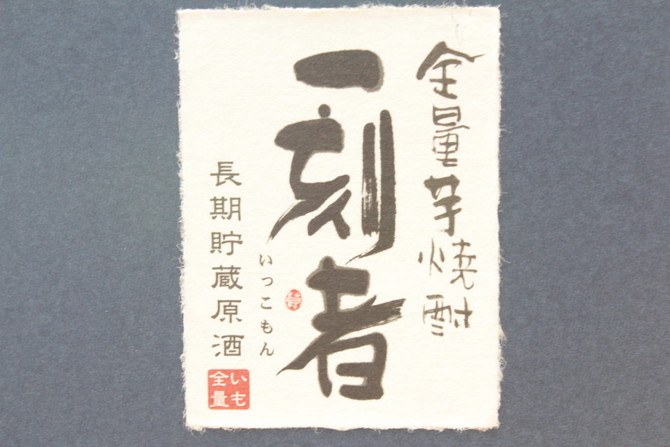 全量芋焼酎
一刻者
いっこもん
長期貯蔵原酒
いも
全量